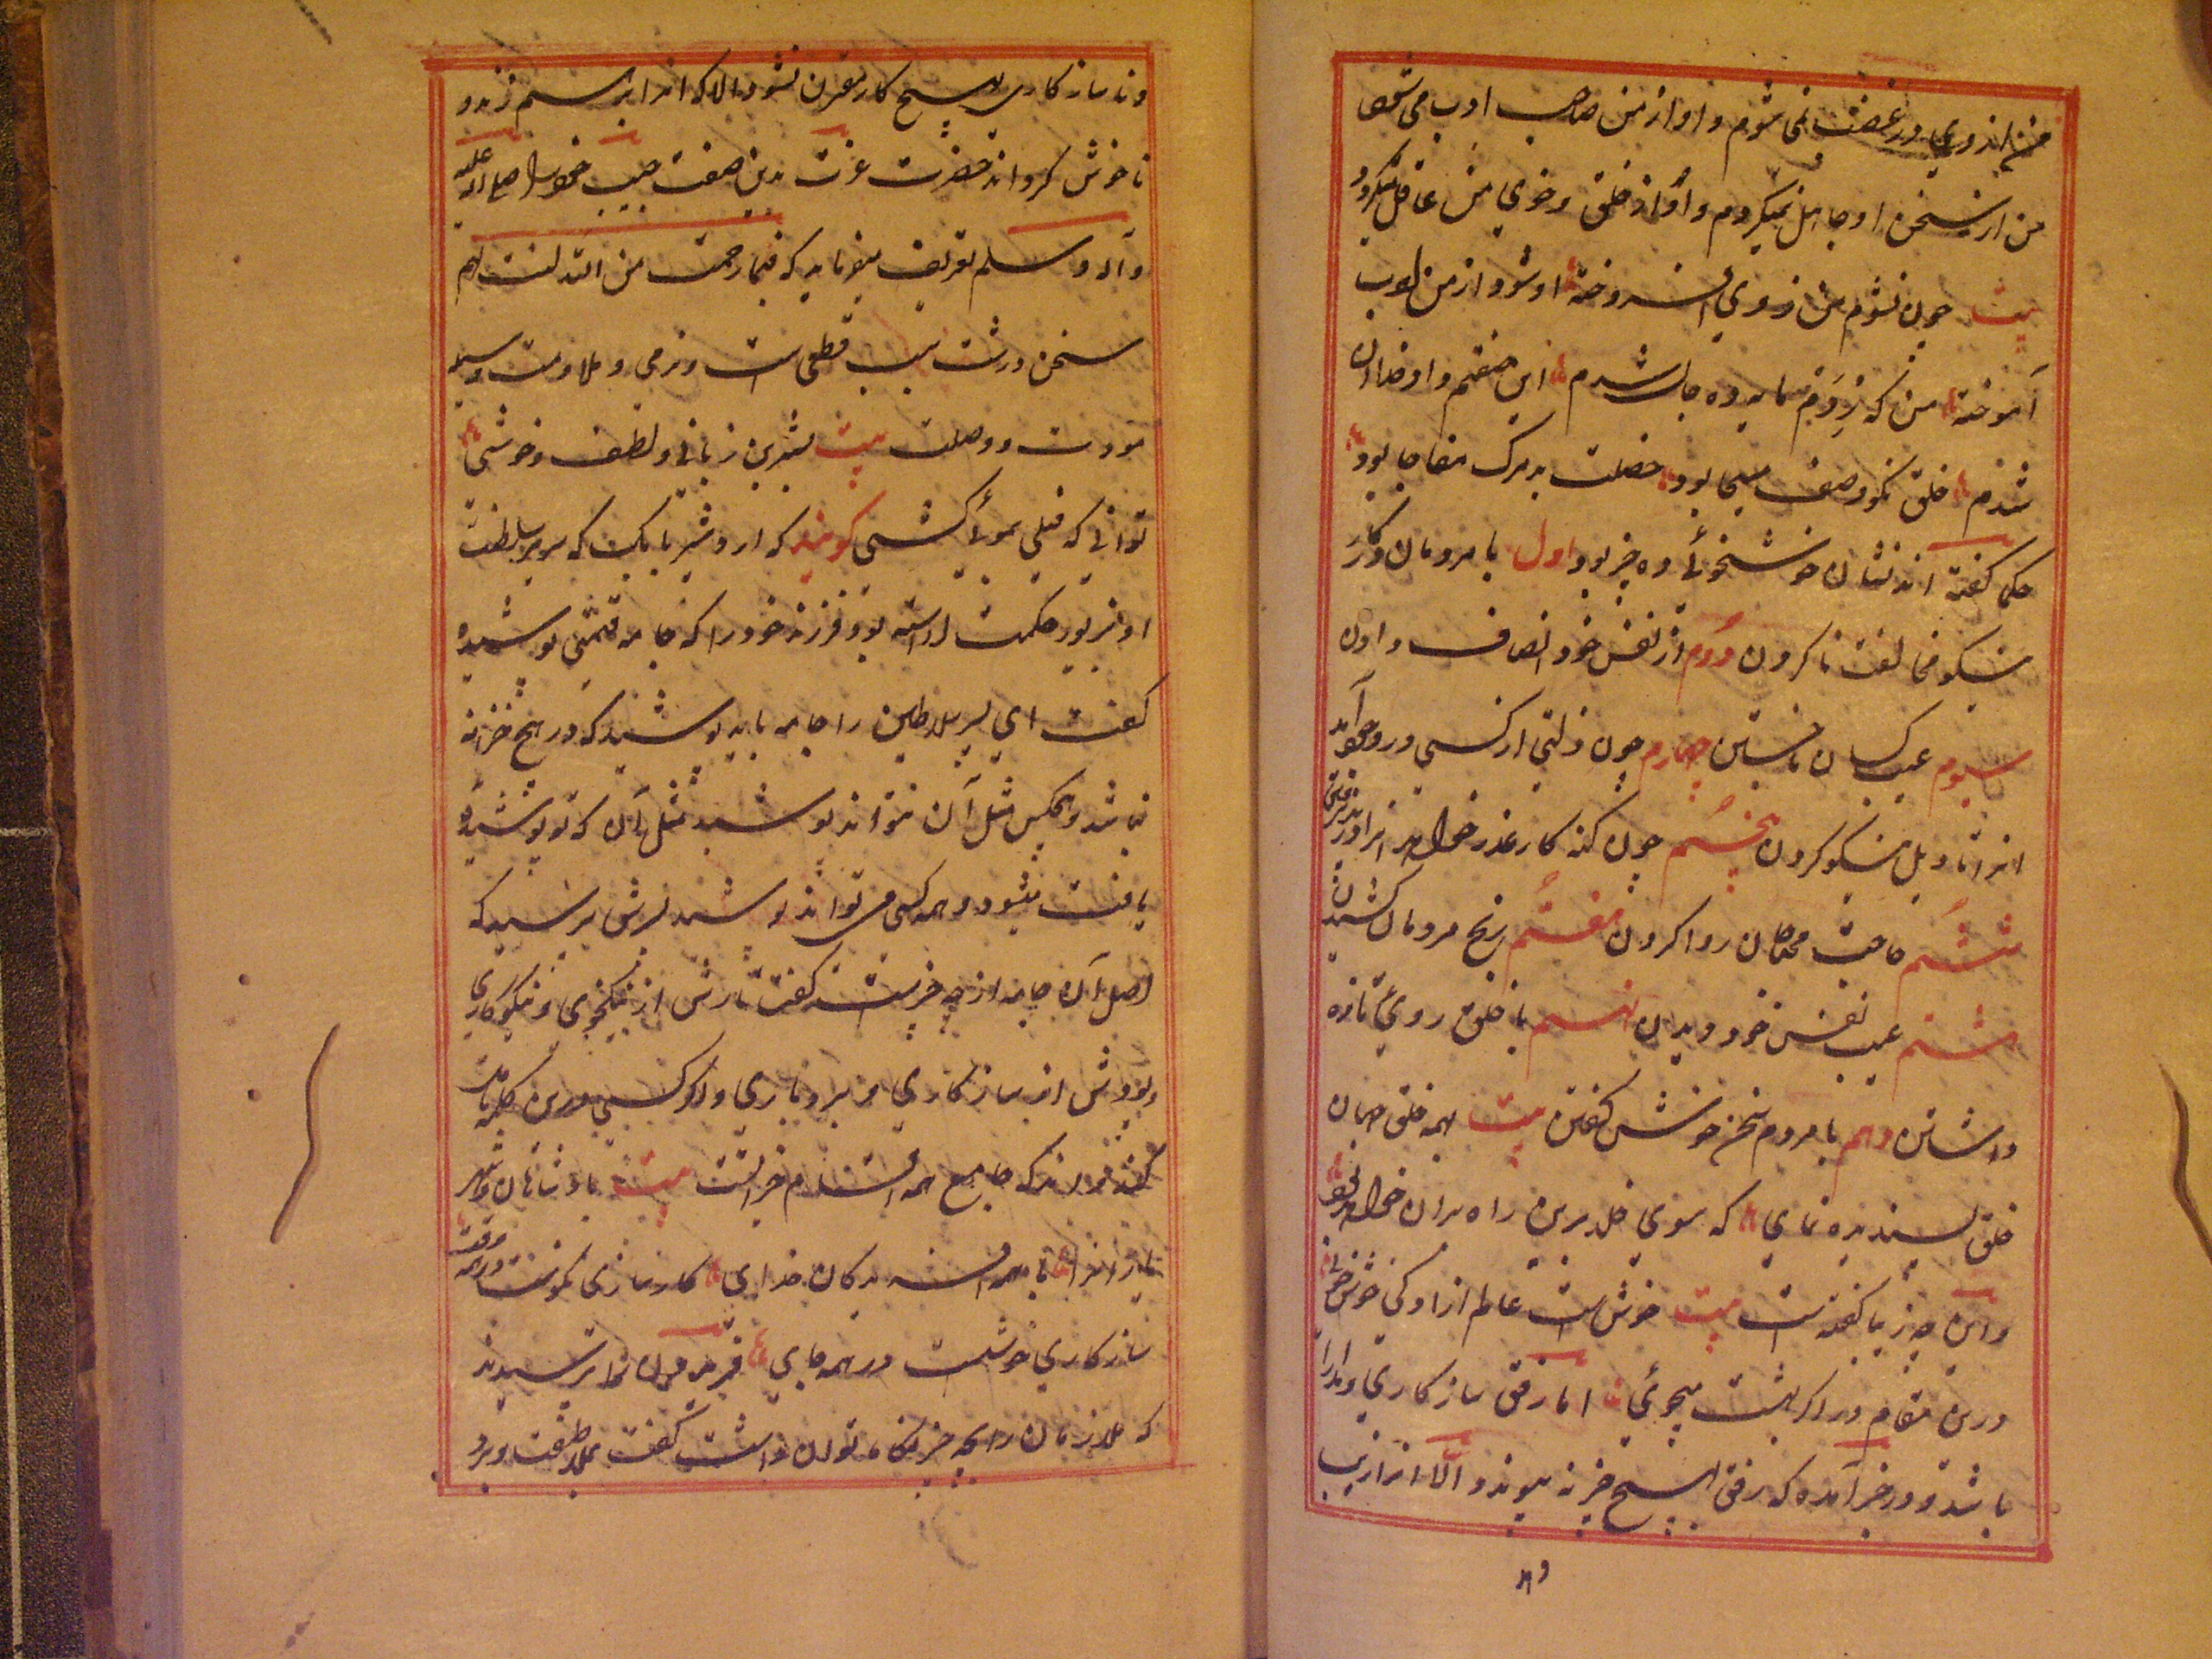 من از وی در غضب نمی شوم و او از من صاحب ادب می شود
من از سخن او جاهل نمیگردم و او از خلق و خوی من عاقل میگردد
بیت چون نشوم من ز وی افروخته او شود از من ادب
آموخته من که ز دم مایه ده جان شدم این صفتم داد خدا آن
شدم خلق نکو وصف مسیحا بود خصلت بد مرگ مفاجا بود
حکما گفته اند نشان خوشخوئی ده چیز بود اول با مردمان در کار
نیکو مخالفت ناکردن دوم از نفس خود انصاف دادن
سیوم عیب کسان ناجستن چهارم چون زلتی از کسی در وجود آید
انرا تاویل نیکو کردن پنجم چون گنه کار عذر خواهد انرا در پذیرفتن
ششم حاجت محتاجان روا کردن هفتم رنج مردمان کشیدن
هشتم عیب نفس خود دیدن نهم با خلق روی تازه
داشتن دهم با مردم سخن خوش گفتن بیت بهمه خلق جهان
خلق پسندیده نمای که سوی خلد برین راه بدان خواهد بود
و این چه زیبا گفته است بیت خوش است عالم آزادگی و خوشخوئی
درین مقام در اگر بهشت میجوئی اما رفق سازگاری و مدارا
باشد و در خبر آمده که رفق بهیچ چیز نه پیوندد الا انرا زیب
دهد
و ناسازکاری بهیچ کار مقرن نشود الا که انرا برسم زند و
ناخوش کرداند حضرت عزت بدین صفت حبیب خود را صلی الله علیه
و آله و سلم تعریف میفرماید که فبما رحمت من الله لنت لهم
سخن درشت سبب قطعی است و نرمی و ملاومت وسیله
مودت و وصلت بیت بشیرین زبانی و لطف و خوشی
توانی که فیلی بموئی کشی گویند که اردشیر بابک که سریر سلطنت
او بزیور حکمت آراسته بود فرزند خود را که جامه قیمتی پوشیده
گفت ای پسر سلاطین را جامه باید پوشید که در هیچ خزانه
نباشد و هیچکس مثل آن نتواند پوشید مثل آن که تو پوشیده
یافت میشود و همه کس می تواند پوشید پسرش پرسید که
اصل آن جامه از چه چیز است گفت تارش از نیکخوی و نیکوکاری
و پودش از سازکاری و بردباری و اگر کسی درین کلمات تامل
کند بداند که جامع همه است نظم خزانست بیت پادشاهان و شهر
یاران را با همه بندکان خدای کارسازی نکوست در همه وقت
سازکاری خوشست در همه جای فریدون را پرسیدند
که ملازمان را بچه چیز نگاه توان داشت گفت بملاطفت و برد